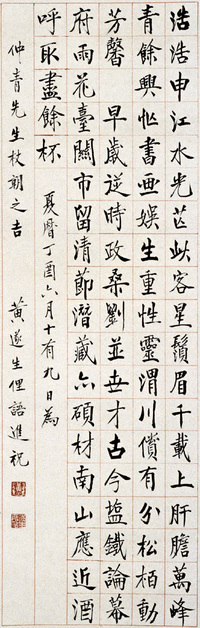 浩浩申江水光芒此客星鬚眉千載上肝膽萬峰
青餘興作書画娛生重性靈渭川償有分松柏動
芳馨 早歲逆時政桑劉並世才古今塩鐵論幕
府雨花臺關市留清節潛藏亦碩材南山應近酒
呼取盡餘杯 夏曆丁酉六月十有九日為
仲青先生杖朝之吉 黃遂生俚語進祝